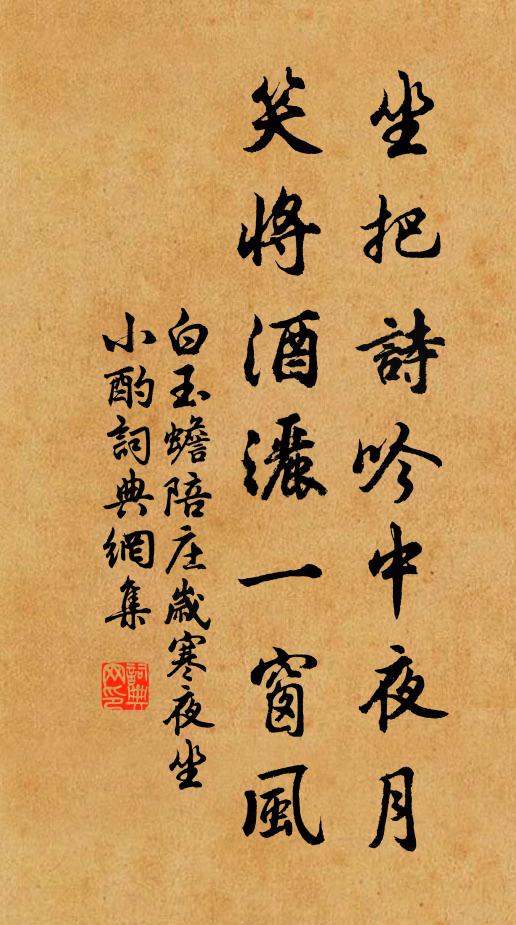 坐把詩吟中夜月
笑將酒灑一窗風
白玉蟾陪庄歲寒夜坐
小酌詞典網集
詞典
网印